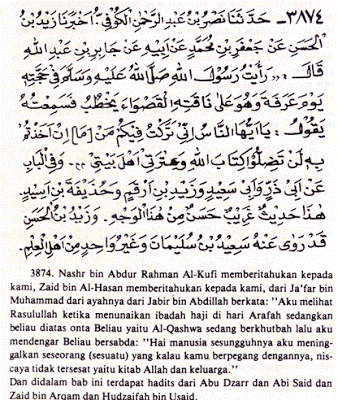 ٣٨٧٤ـ حَدَّثَنَا نَصْرُ بْنُ عَبْدِ الرَّحْمٰنِ الْكُوْفِيُّ أَخْبَرَنَا زَيْدُ بْنُ
الْحَسَنِ عَنْ جَعْفَرِ بْنِ مُحَمَّدٍ عَنْ أَبِيْهِ عَنْ جَابِرِ بْنِ عَبْدِ اللهِ
قَالَ: «رَأَيْتُ رَسُوْلَ اللهِ صَلَّى اللهُ عَلَيْهِ وَسَلَّمَ فِيْ حَجَّتِهِ
يَوْمَ عَرَفَةَ وَهُوَ عَلَى نَاقَتِهِ الْقَصْوَاءِ يَخْطُبُ فَسَمِعْتُهُ
يَقُوْلُ: يَا أَيُّهَا النَّاسُ إِنِّيْ تَرَكْتُ فِيْكُمْ مَنْ [مَا] إِنْ أَخَذْتُمْ
بِهِ لَنْ تَضِلُّوْا كِتَابَ اللهِ وَعِتْرَتِيْ أَهْلَ بَيْتِيْ». وَفِي الْبَابِ
عَنْ أَبِيْ ذَرٍّ وَأَبِيْ سَعِيْدٍ وَزَيْدِ بْنِ أَرْقَمَ وَحُذَيْفَةَ بْنِ أَسِيْدٍ.
هٰذَا حَدِيْثٌ غَرِيْبٌ حَسَنٌ مِنْ هٰذَا الْوَجْهِ. وَزَيْدُ بْنُ الْحَسَنِ
قَدْ رَوَى عَنْهُ سَعِيْدُ بْنُ سُلَيْمَانَ وَغَيْرُ وَاحِدٍ مِنْ أَهْلِ الْعِلْمِ.
3874. Nashr bin Abdur Rahman Al-Kufi memberitahukan kepada
kami, Zaid bin Al-Hasan memberitahukan kepada kami, dari Ja'far bin
Muhammad dari ayahnya dari Jabir bin Abdillah berkata: "Aku melihat
Rasulullah ketika menunaikan ibadah haji di hari Arafah sedangkan
beliau diatas onta Beliau yaitu Al-Qashwa sedang berkhutbah lalu aku
mendengar Beliau bersabda: "Hai manusia sesungguhnya aku mening-
galkan seseorang (sesuatu) yang kalau kamu berpegang dengannya, nis-
caya tidak tersesat yaitu kitab Allah dan keluarga."
Dan didalam bab ini terdapat hadits dari Abu Dzarr dan Abi Said dan
Zaid bin Arqam dan Hudzaifah bin Usaid.